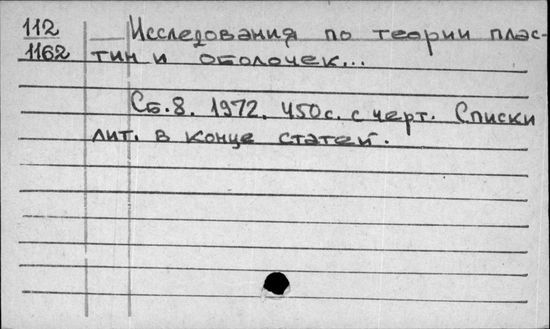 112 — Исследования по теории плас-
1162 тин и оболочек...
Сб. 8. 1972. 450 с. с черт. Списки
лит. в конце статей.